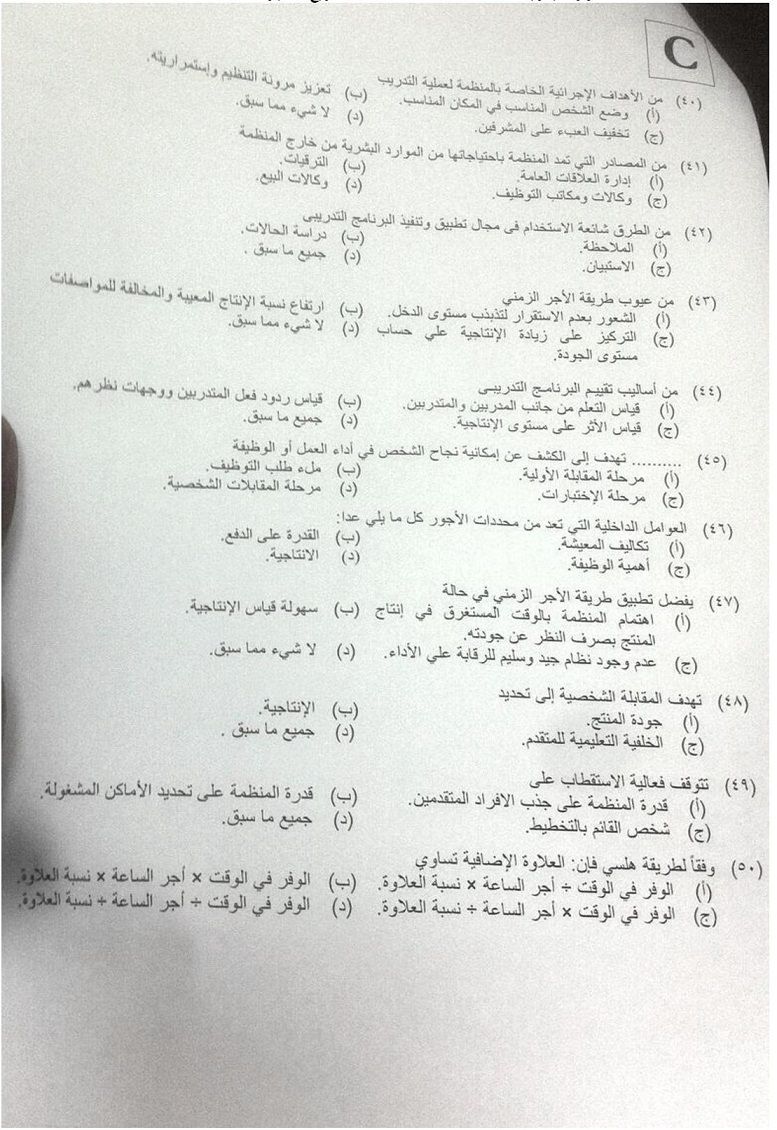 C
(٤٠) من الأهداف الإجرائية الخاصة بالمنظمة لعملية التدريب
(أ) وضع الشخص المناسب في المكان المناسب. (ب) تعزيز مرونة التنظيم وإستمراريته.
(ج) تخفيف العبء على المشرفين. (د) لا شيء مما سبق.
(٤١) من المصادر التي تمد المنظمة باحتياجاتها من الموارد البشرية من خارج المنظمة
(أ) إدارة العلاقات العامة. (ب) الترقيات.
(ج) وكالات ومكاتب التوظيف. (د) وكالات البيع.
(٤٢) من الطرق شائعة الاستخدام فى مجال تطبيق وتنفيذ البرنامج التدريبى
(أ) الملاحظة. (ب) دراسة الحالات.
(ج) الاستبيان. (د) جميع ما سبق .
(٤٣) من عيوب طريقة الأجر الزمني
(أ) الشعور بعدم الاستقرار لتذبذب مستوى الدخل. (ب) ارتفاع نسبة الإنتاج المعيبة والمخالفة للمواصفات
(ج) التركيز على زيادة الإنتاجية علي حساب (د) لا شيء مما سبق.
مستوى الجودة.
(٤٤) من أساليب تقييم البرنامج التدريبى
(أ) قياس التعلم من جانب المدربين والمتدربين. (ب) قياس ردود فعل المتدربين ووجهات نظرهم.
(ج) قياس الأثر على مستوى الإنتاجية. (د) جميع ما سبق.
(٤٥) .......... تهدف إلى الكشف عن إمكانية نجاح الشخص في أداء العمل أو الوظيفة
(أ) مرحلة المقابلة الأولية. (ب) ملء طلب التوظيف.
(ج) مرحلة الإختبارات. (د) مرحلة المقابلات الشخصية.
(٤٦) العوامل الداخلية التي تعد من محددات الأجور كل ما يلي عدا:
(أ) تكاليف المعيشة. (ب) القدرة على الدفع.
(ج) أهمية الوظيفة. (د) الانتاجية.
(٤٧) يفضل تطبيق طريقة الأجر الزمني في حالة
(أ) اهتمام المنظمة بالوقت المستغرق في إنتاج (ب) سهولة قياس الإنتاجية.
المنتج بصرف النظر عن جودته.
(ج) عدم وجود نظام جيد وسليم للرقابة علي الأداء. (د) لا شيء مما سبق.
(٤٨) تهدف المقابلة الشخصية إلى تحديد
(أ) جودة المنتج. (ب) الإنتاجية.
(ج) الخلفية التعليمية للمتقدم. (د) جميع ما سبق .
(٤٩) تتوقف فعالية الاستقطاب على
(أ) قدرة المنظمة على جذب الافراد المتقدمين. (ب) قدرة المنظمة على تحديد الأماكن المشغولة.
(ج) شخص القائم بالتخطيط. (د) جميع ما سبق.
(٥٠) وفقاً لطريقة هلسي فإن: العلاوة الإضافية تساوي
(أ) الوفر في الوقت ÷ أجر الساعة × نسبة العلاوة. (ب) الوفر في الوقت × أجر الساعة × نسبة العلاوة.
(ج) الوفر في الوقت × أجر الساعة ÷ نسبة العلاوة. (د) الوفر في الوقت ÷ أجر الساعة ÷ نسبة العلاوة.